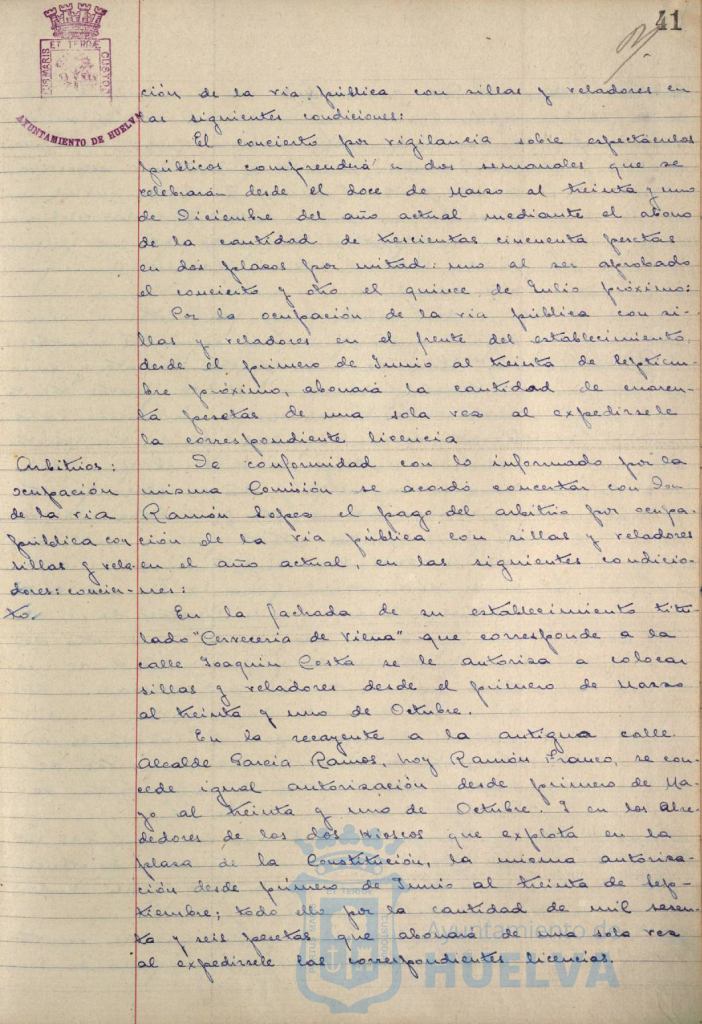 41
PORTUS MARIS ET TERRÆ CUSTODIA
AYUNTAMIENTO DE HUELVA
ción de la via pública con sillas y veladores en
las siguientes condiciones:
El concierto por vigilancia sobre espectáculos
públicos comprenderá a dos semanales que se
celebrarán desde el doce de Marzo al treinta y uno
de Diciembre del año actual mediante el abono
de la cantidad de trescientas cincuenta pesetas
en dos plazos por mitad: uno al ser aprobado
el concierto y otro el quince de Julio próximo:
Por la ocupación de la via pública con si-
llas y veladores en el frente del establecimiento,
desde el primero de Junio al treinta de Septiem-
bre próximo, abonará la cantidad de cuaren-
ta pesetas de una sola vez al expedirsele
la correspondiente licencia
Arbitrios:
ocupación
de la via
pública con
sillas y vela-
dores: concier-
to.
De conformidad con lo informado por la
misma Comisión se acordó concertar con Don
Ramón Lopez el pago del arbitrio por ocupa-
ción de la via pública con sillas y veladores
en el año actual, en las siguientes condicio-
nes:
En la fachada de su establecimiento titu-
lado "Cerveceria de Viena" que corresponde a la
calle Joaquin Costa se le autoriza a colocar
sillas y veladores desde el primero de Marzo
al treinta y uno de Octubre.
En la recayente a la antigua calle
Alcalde Garcia Ramos, hoy Ramón Franco, se con-
cede igual autorización desde primero de Ma-
yo al treinta y uno de Octubre. I en los alre-
dedores de los dos Kioscos que explota en la
plaza de la Constitución, la misma autoriza-
ción desde primero de Junio al treinta de Sep-
tiembre; todo ello por la cantidad de mil sesen-
ta y seis pesetas que abonará de una sola vez
al expedirsele las correspondientes licencias.
Ayuntamiento de
HUELVA